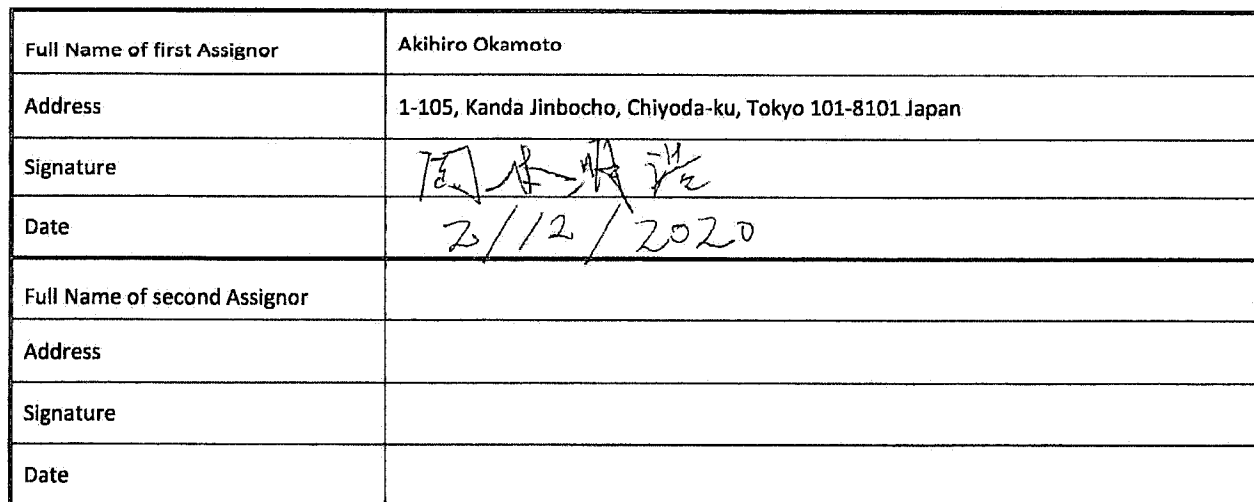 Full Name of first Assignor Akihiro Okamoto
Address 1-105, Kanda Jinbocho, Chiyoda-ku, Tokyo 101-8101 Japan
Signature 岡本
Date 2/12/2020
Full Name of second Assignor
Address
Signature
Date